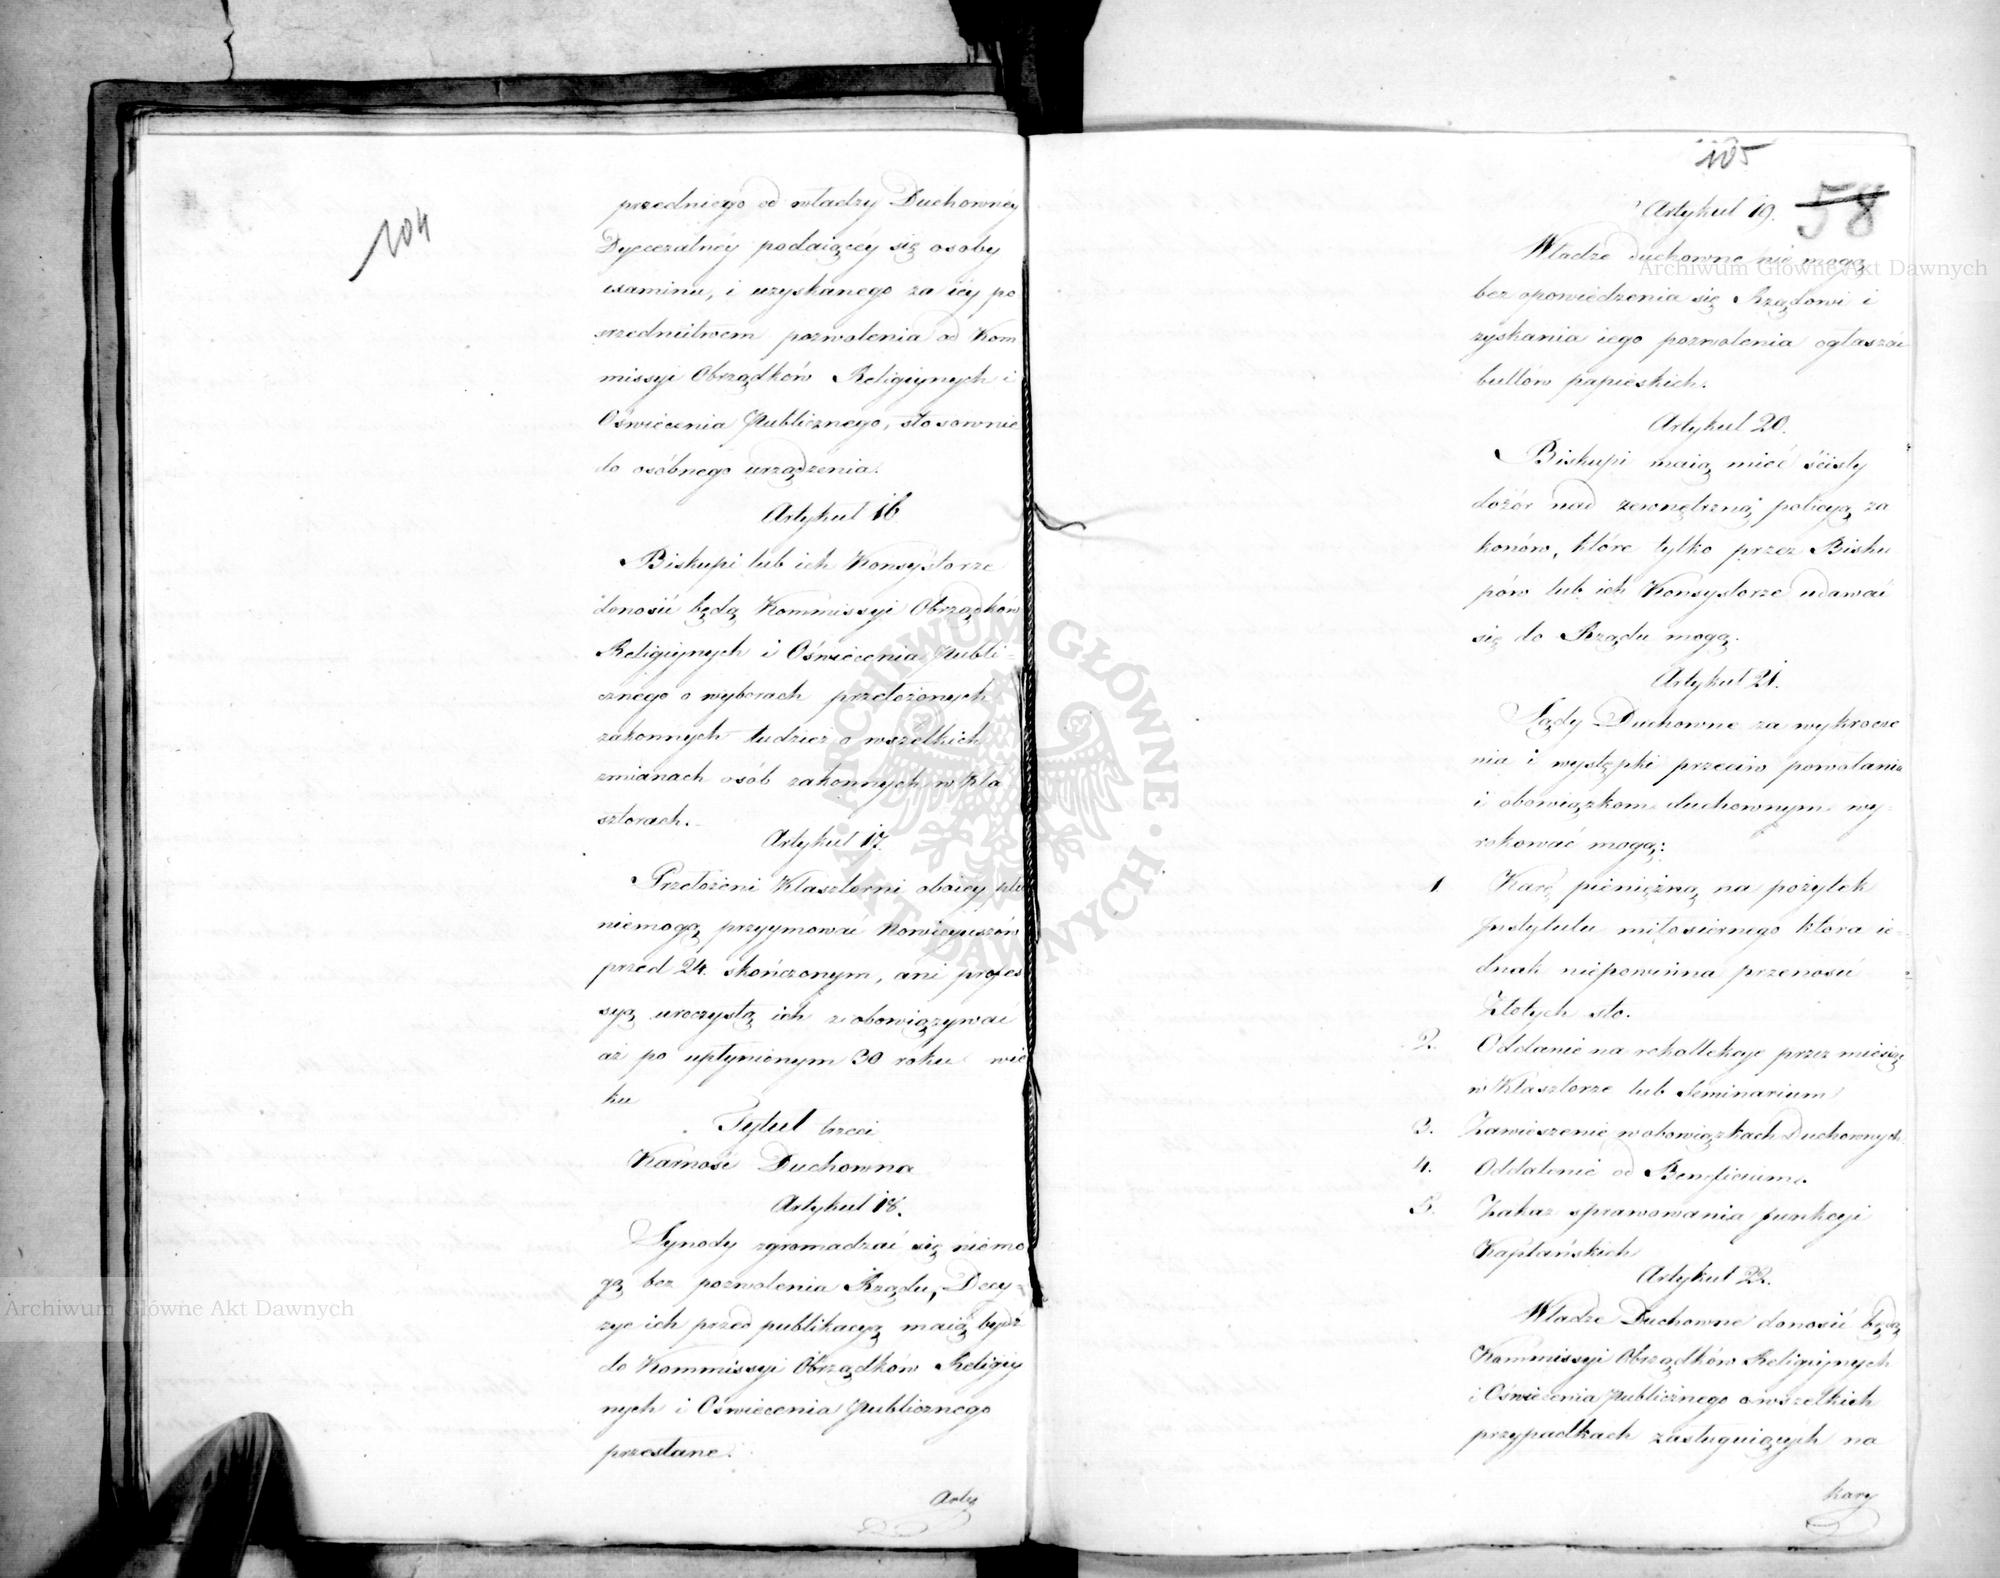 104
przedniego od władzy Duchownéy
Dyecezalnéy podaiącéy się osoby
examinu, i uzyskanego za iéy po
srzednictwem pozwolenia od Kom
missyi Obrządków Religijnych i
Oświecenia Publicznego, stosownie
do osóbnego urządzenia.
Artykuł 16
Biskupi lub ich Konsystorze
donosić będą Kommissyi Obrządków
Religijnych i Oświecenia Publi-
cznego o wyborach przełożonych
zakonnych tudzież o wszelkich
zmianach osób zakonnych w Kla
sztorach.
Artykuł 17
Przełożeni Klasztorni oboiey płci
niemogą przyymować Nowicyuszów
przed 24. skończonym, ani profes
syą uroczystą ich zobowiązywać
aż po upłynionym 30 roku wie
ku
Tytuł trzeci
Karność Duchowna
Artykuł 18.
Synody zgromadzać się niemo
gą bez pozwolenia Rządu, Decy-
zye ich przed publikacyą maią bydź
do Kommissyi Obrządków Religiy
nych i Oświecenia Publicznego
przesłane.
Arty
105
58
Artykuł 19.
Władze duchowne nie mogą
bez opowiedzenia się Rządowi i
zyskania iego pozwolenia ogłaszać
bullów papieskich.
Artykuł 20.
Biskupi maią mieć ścisły
dozór nad zewnętrzną policyą za
konów, które tylko przez Bisku
pów lub ich Konsystorze udawać
się do Rządu mogą.
Artykuł 21.
Sądy Duchowne za wykrocze
nia i występki przeciw powołaniu
i obowiązkom duchownym wy-
rokować mogą:
1 Karę pieniężną na pożytek
Instytutu miłosiernego która ie-
dnak niepowinna przenosić
Złotych sto.
2. Oddanie na rekollekcye przez miesiąc
w Klasztorze lub Seminarium
3. Zawieszenie w obowiązkach Duchownych
4. Oddalenie od Beneficium.
5. Zakaz sprawowania funkcyi
Kapłańskich
Artykuł 22.
Władze Duchowne donosić będą
Kommissyi Obrządków Religijnych
i Oświecenia Publicznego o wszelkich
przypadkach zasługuiących na
kary
Archiwum Główne Akt Dawnych
Archiwum Główne Akt Dawnych
ARCHIWUM GŁÓWNE · AKT DAWNYCH ·